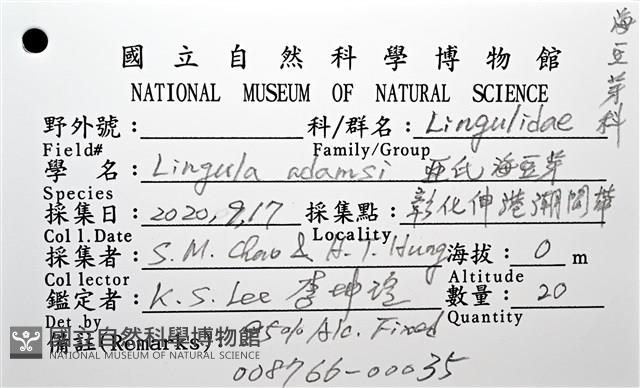 海豆芽科
國立自然科學博物館
NATIONAL MUSEUM OF NATURAL SCIENCE
野外號： 科/群名：Lingulidae
Field# Family/Group
學 名：Lingula adamsi 亞氏海豆芽
Species
採集日：2020,9,17 採集點：彰化伸港潮間帶
Coll.Date Locality
採集者：S. M. Chao & H. T. Hung 海拔：0 m
Collector Altitude
鑑定者：K. S. Lee 李坤瑄 數量：20
Det by Quantity
備註(Remarks) 95% Alc. Fixed
008766-00035
國立自然科學博物館
NATIONAL MUSEUM OF NATURAL SCIENCE